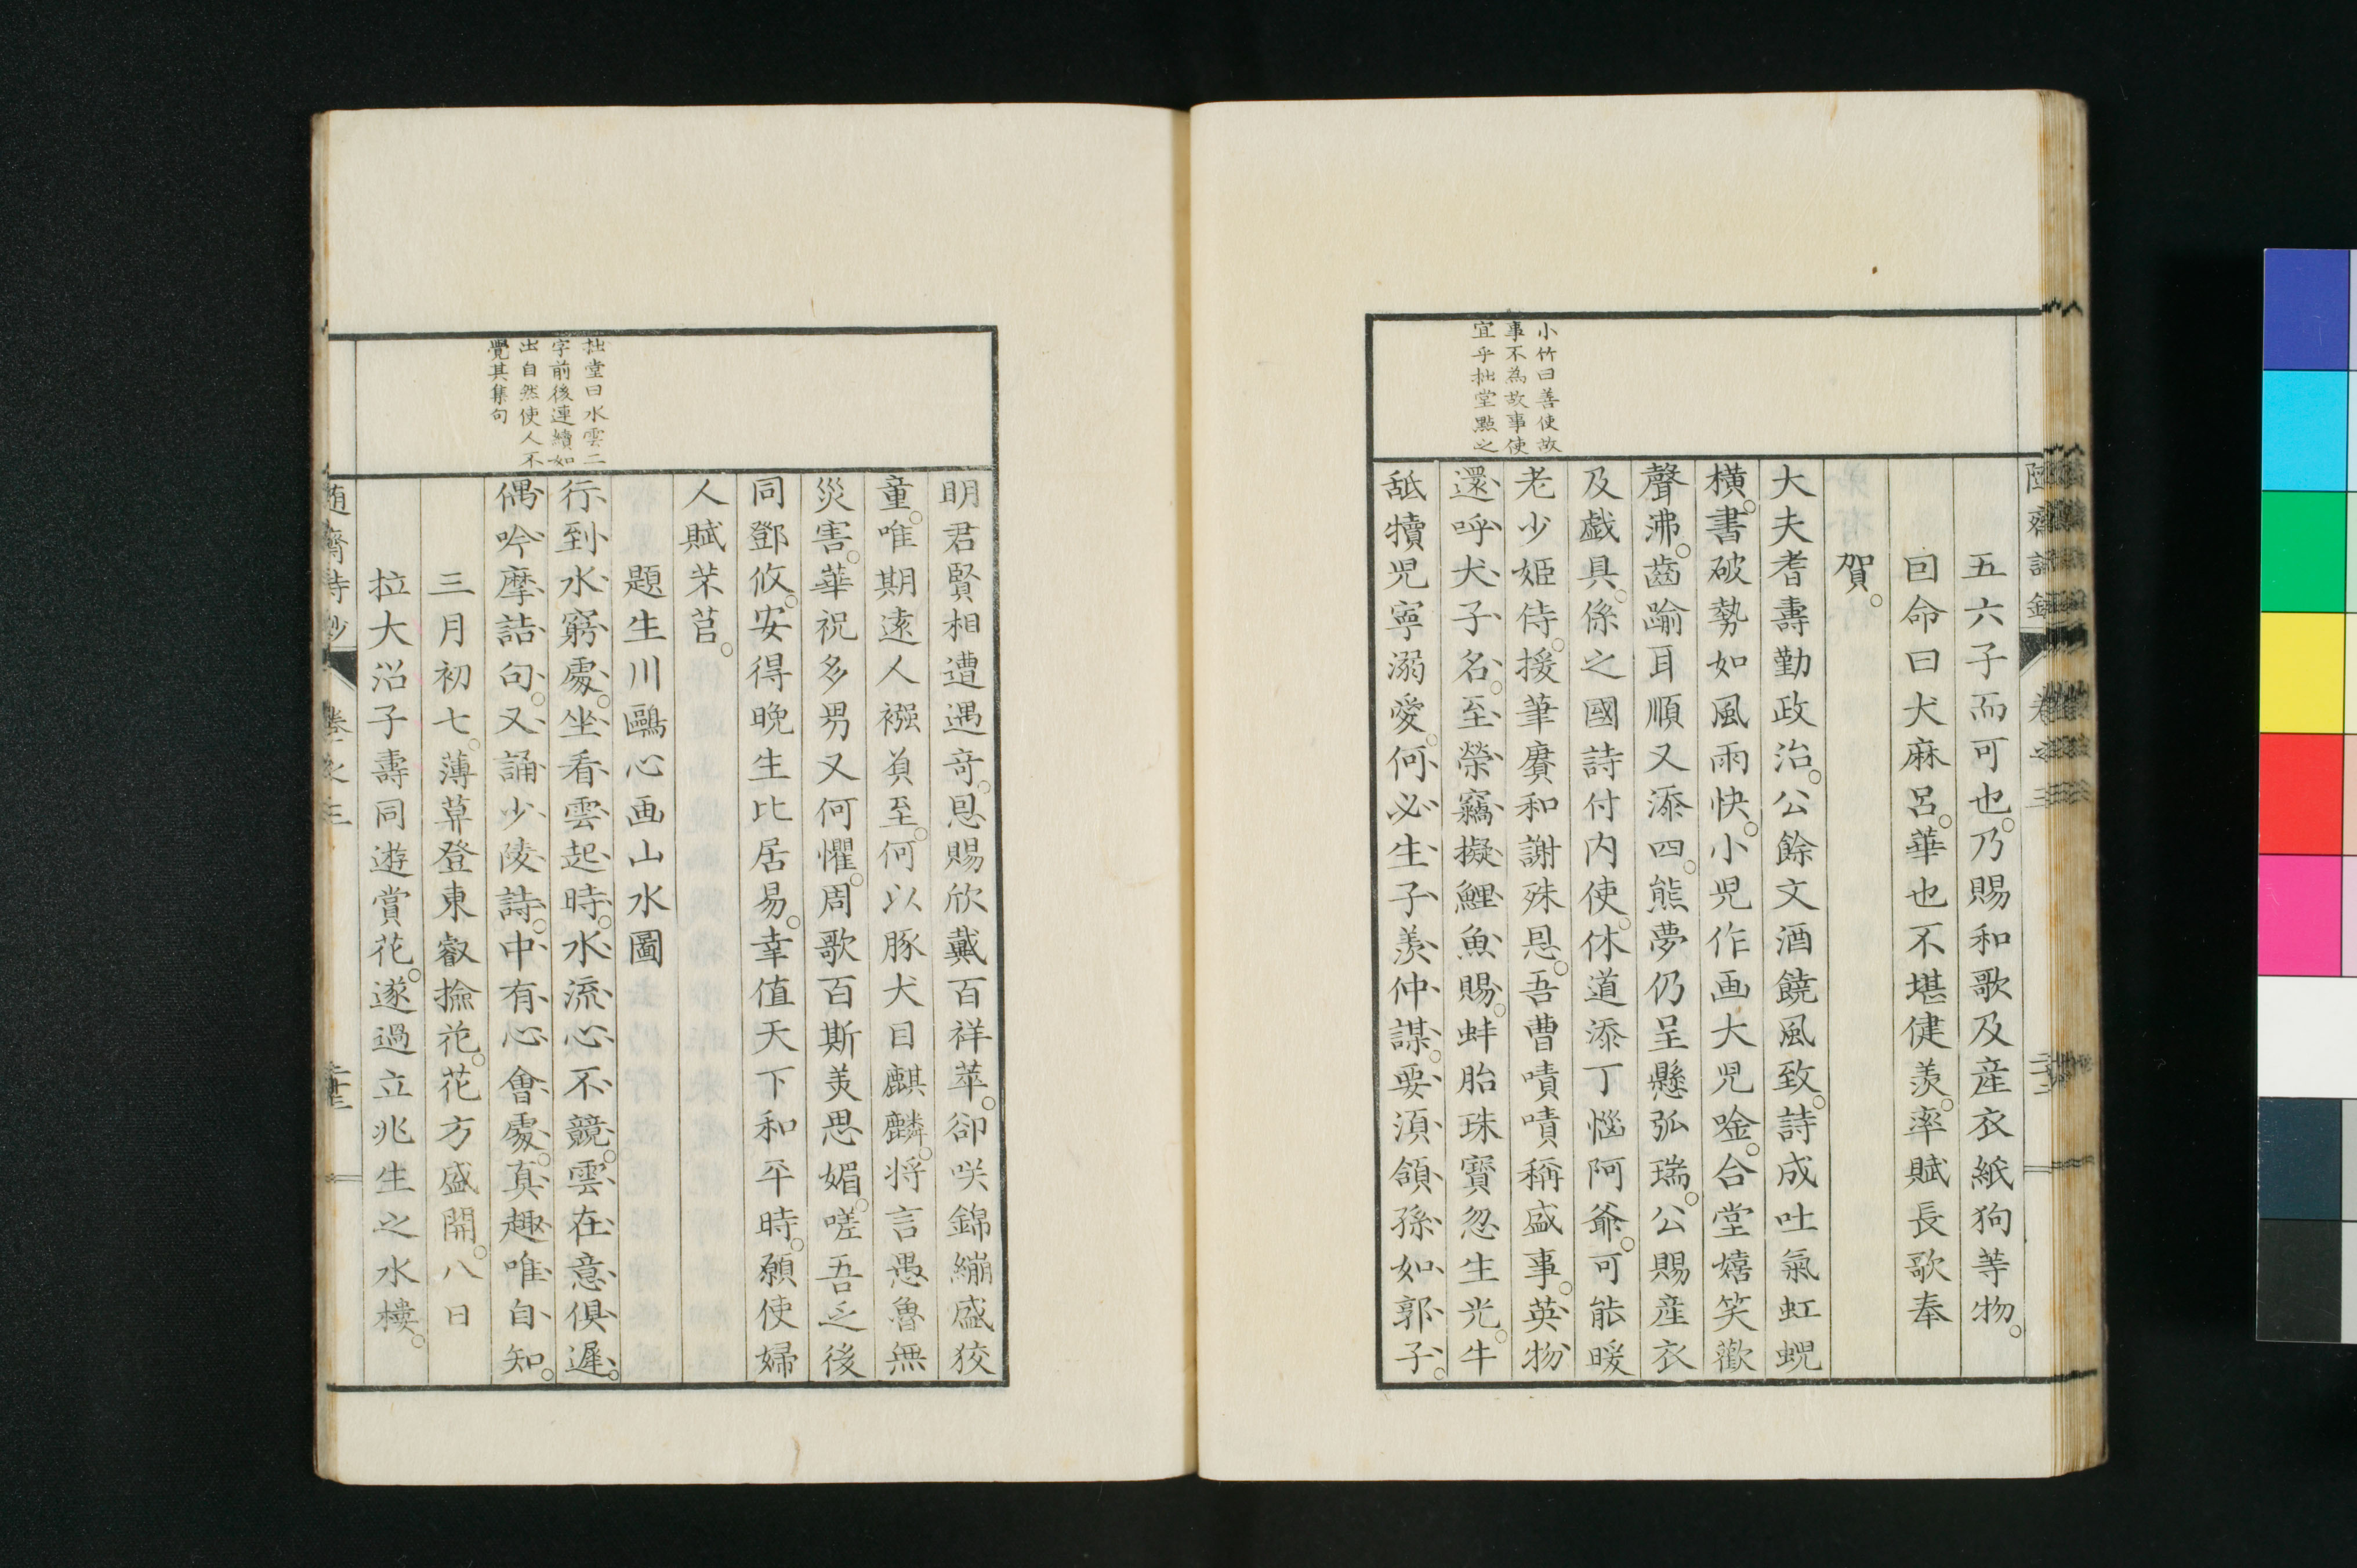 五六子而可也。乃賜和歌及産衣紙狗等物。
回命曰犬麻呂。華也不堪健羨。率賦長歌奉
賀。
大夫耆壽勤政治。公餘文酒饒風致。詩成吐氣虹蜺
橫。書破勢如風雨快。小児作画大児唫。合堂嬉笑歡
聲沸。齒踰耳順又添四。熊夢仍呈懸弧瑞。公賜産衣
及戯具。係之國詩付内使。休道添丁惱阿爺。可能暖
老少姬侍。援筆賡和謝殊恩。吾曹嘖嘖稱盛事。英物
還呼犬子名。至榮竊擬鯉魚賜。蚌胎珠寶忽生光。牛
舐犢児寧溺愛。何必生子羨仲謀。要須頷孫如郭子。
小竹曰善使故
事不為故事使
宜乎拙堂點之
明君賢相遭遇奇。恩賜欣戴百祥萃。卻咲錦繃盛狡
童。唯期遠人襁負至。何以豚犬目麒麟。将言愚魯無
災害。華祝多男又何懼。周歌百斯美思媚。嗟吾乏後
同鄧攸。安得晚生比居易。幸值天下和平時。願使婦
人賦芣苢。
題生川鷗心画山水圖
行到水窮處。坐看雲起時。水流心不競。雲在意俱遲。
偶吟摩詰句。又誦少陵詩。中有心會處。真趣唯自知。
三月初七。薄草登東叡撿花。花方盛開。八日
拉大沼子壽同遊賞花。遂過立兆生之水樓。
拙堂曰水雲二
字前後連續如
出自然使人不
覺其集句
随齋詩鈔 卷之三 二十三